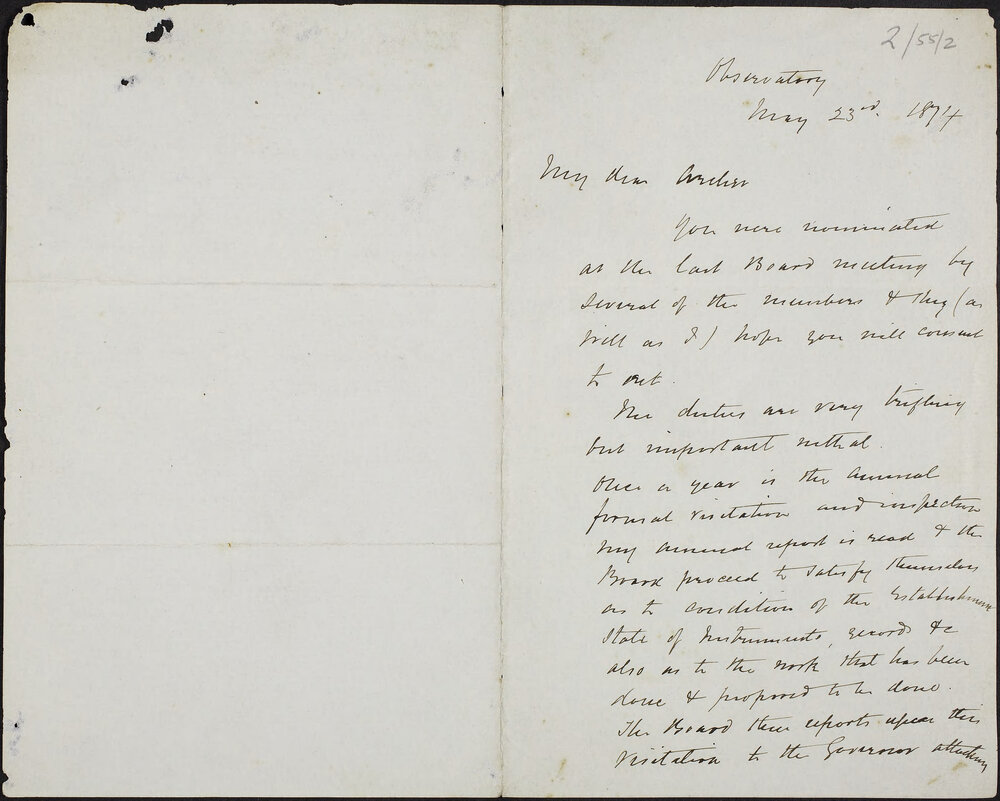 2/55/2
Observatory
May 23rd. 1874
My dear Archer
You were nominated
at the last Board meeting by
several of the members & they (as
well as I) hope you will consent
to act.
The duties are very trifling
but important withal.
Once a year is the annual
formal visitation and inspection
My annual report is read & the
Board proceed to satisfy themselves
as to condition of the Establishment
State of Instruments, records &c
also as to the work that has been
done & proposed to be done.
The Board then reports upon this
visitation to the Governor attaching